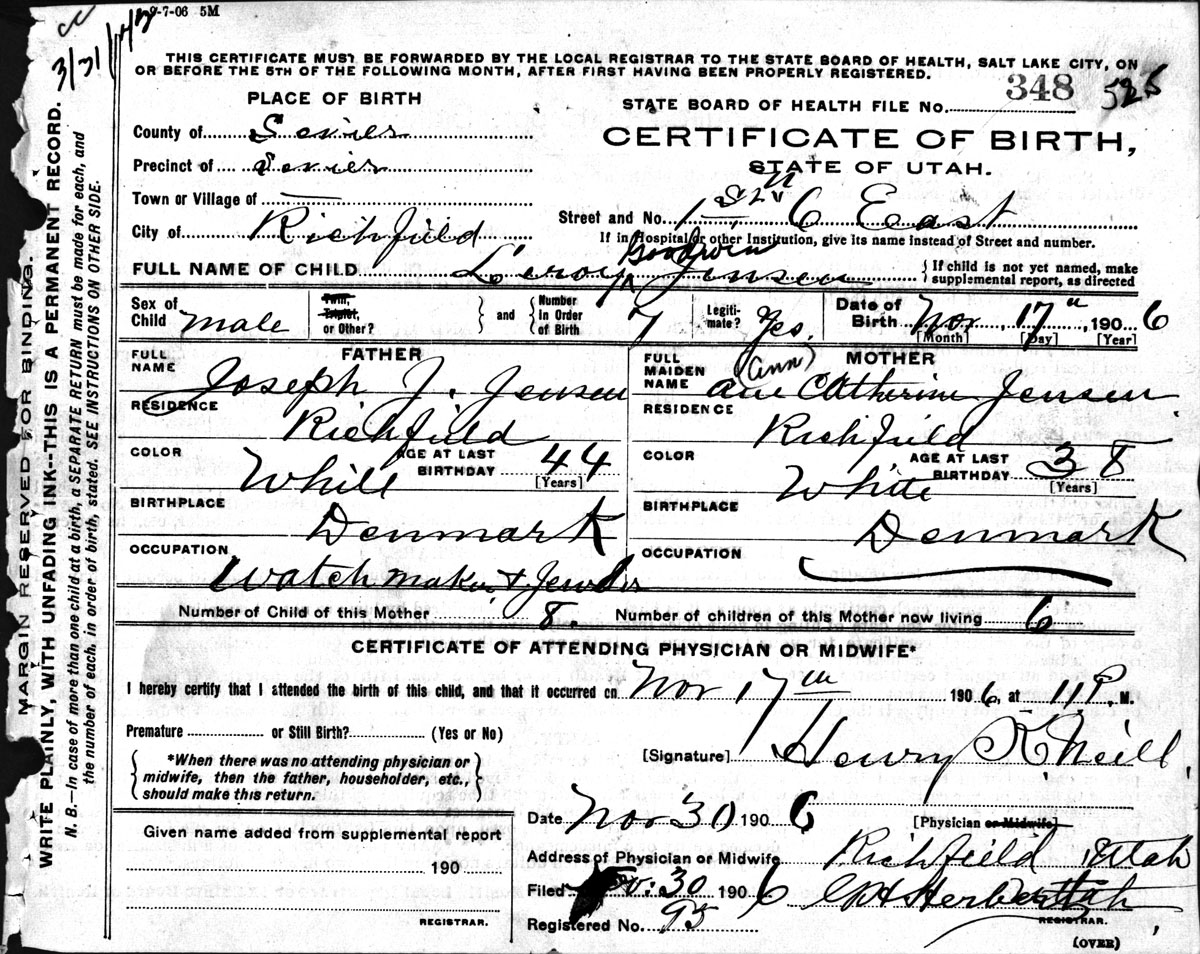 9-7-06 5M
3/31/42
THIS CERTIFICATE MUST BE FORWARDED BY THE LOCAL REGISTRAR TO THE STATE BOARD OF HEALTH, SALT LAKE CITY, ON
OR BEFORE THE 5TH OF THE FOLLOWING MONTH, AFTER FIRST HAVING BEEN PROPERLY REGISTERED.
PLACE OF BIRTH
STATE BOARD OF HEALTH FILE No. 348 525
County of Sevier
CERTIFICATE OF BIRTH,
Precinct of Sevier
STATE OF UTAH.
Town or Village of —
Street and No. 1st 6 East
City of Richfield
If in Hospital or other Institution, give its name instead of Street and number.
Goodwin
FULL NAME OF CHILD Leroy Jensen
{ If child is not yet named, make
supplemental report, as directed
Sex of Child male
Twin, Triplet, or Other? } and { Number in Order of Birth 7
Legitimate? Yes.
Date of Birth Nov, 17", 1906
[Month] [Day] [Year]
FATHER
FULL NAME Joseph J. Jensen
MOTHER
FULL MAIDEN NAME (Ann) Ane Catherine Jensen
RESIDENCE Richfield
RESIDENCE Richfield
COLOR White AGE AT LAST BIRTHDAY 44 [Years]
COLOR White AGE AT LAST BIRTHDAY 38 [Years]
BIRTHPLACE Denmark
BIRTHPLACE Denmark
OCCUPATION Watch maker & Jeweler
OCCUPATION
Number of Child of this Mother 8. Number of children of this Mother now living 6
CERTIFICATE OF ATTENDING PHYSICIAN OR MIDWIFE*
I hereby certify that I attended the birth of this child, and that it occurred on Nov 17th 1906, at 11 P. M.
Premature or Still Birth? (Yes or No)
[Signature] Henry K. Neill
{ *When there was no attending physician or
midwife, then the father, householder, etc.,
should make this return. }
Date Nov 30 1906 [Physician or Midwife]
Given name added from supplemental report
190
REGISTRAR.
Address of Physician or Midwife Richfield Utah
Filed 30 1906 Herbert
REGISTRAR.
Registered No. 95
(OVER)
MARGIN RESERVED FOR BINDING.
WRITE PLAINLY, WITH UNFADING INK--THIS IS A PERMANENT RECORD.
N. B.—In case of more than one child at a birth, a SEPARATE RETURN must be made for each, and
the number of each, in order of birth, stated. SEE INSTRUCTIONS ON OTHER SIDE.